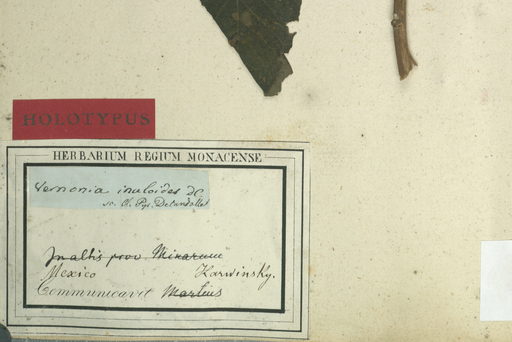 HOLOTYPUS
HERBARIUM REGIUM MONACENSE
Vernonia inuloides DC
In altis prov. Minarum
Mexico Karwinsky.
Communicavit Martius